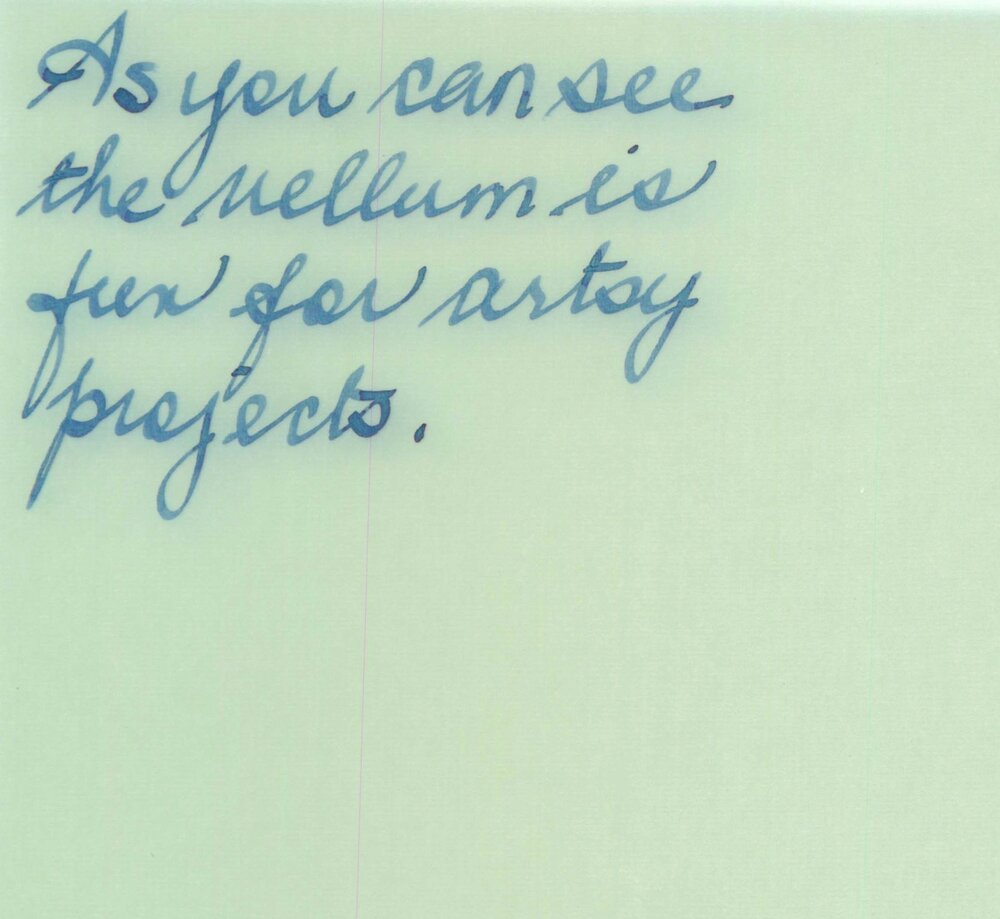 As you can see
the vellum is
fun for artsy
projects.